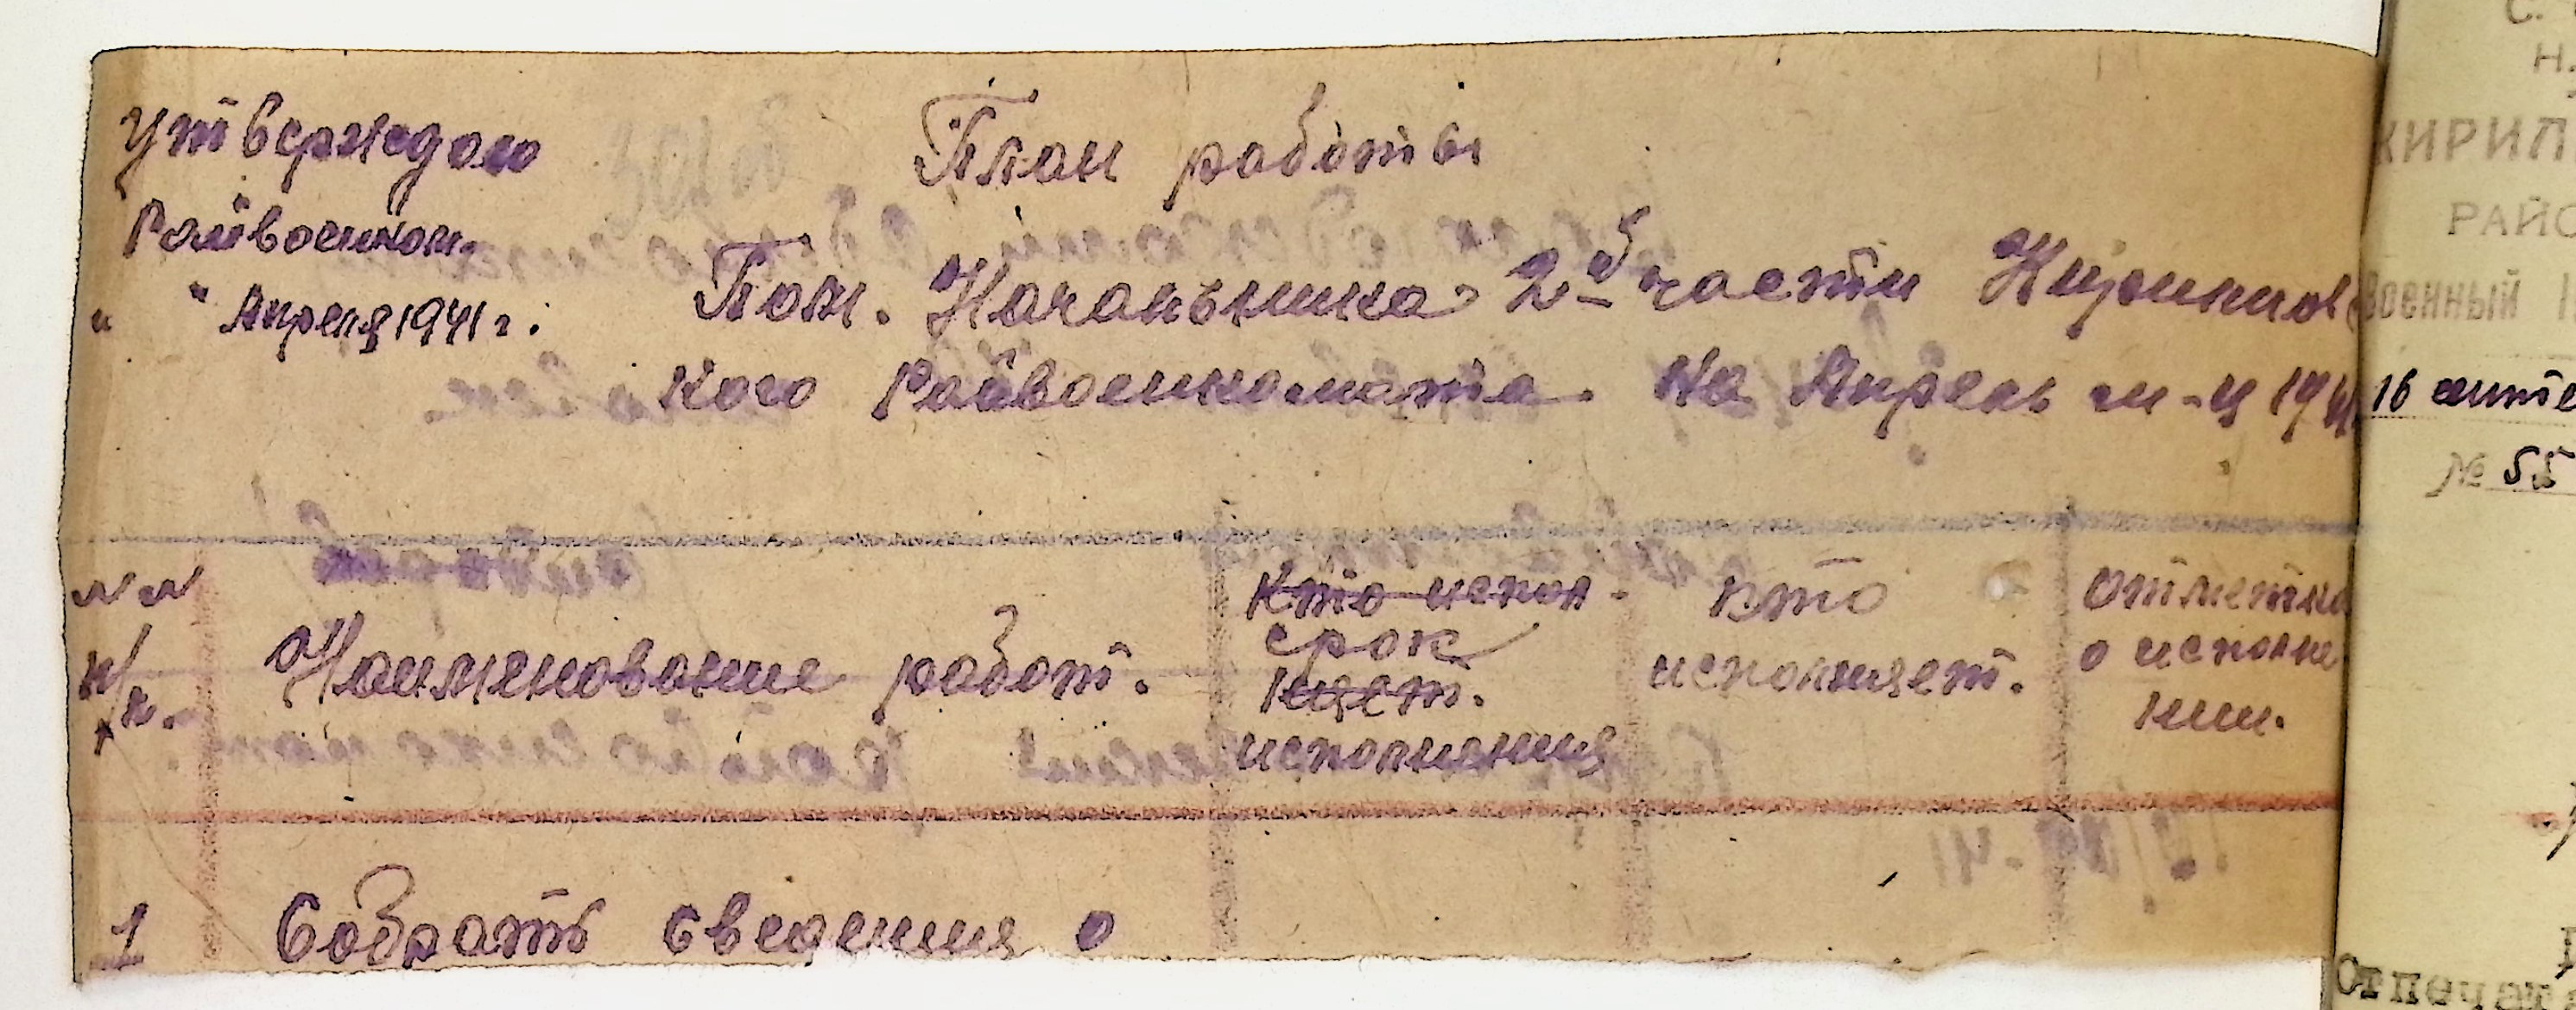 Утверждаю
Райвоенком.
" " Апреля 1941 г.
План работы
Пом. Начальника 2й части Кириллов
кого Райвоенкомата. На Апрель м-ц 1941
NN
п/п.
Наименование работ.
Кто испол-
срок
няет.
исполнения
кто
исполняет.
отметка
о исполне
нии.
1 Собрать сведения о
С.
Н.
КИРИЛ
РАЙО
военный
16 сентя
№ 55
Отпечат